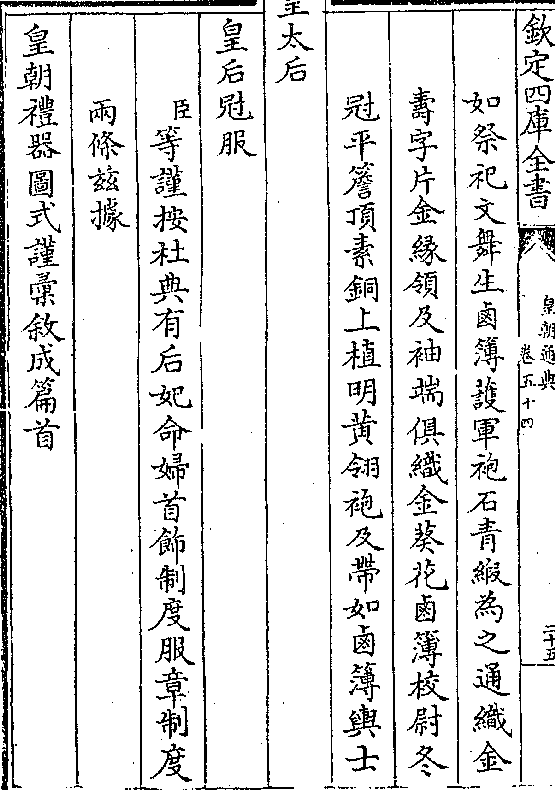 欽定四庫全書
皇朝通典
卷五十四
二十五
如祭祀文舞生鹵簿護軍袍石青緞為之通織金
壽字片金緣領及袖端俱織金葵花鹵簿校尉冬
冠平簷頂素銅上植明黄翎袍及帶如鹵簿輿士
皇太后
皇后冠服
臣等謹按杜典有后妃命婦首飾制度服章制度
兩條兹據
皇朝禮器圖式謹彚敘成篇首